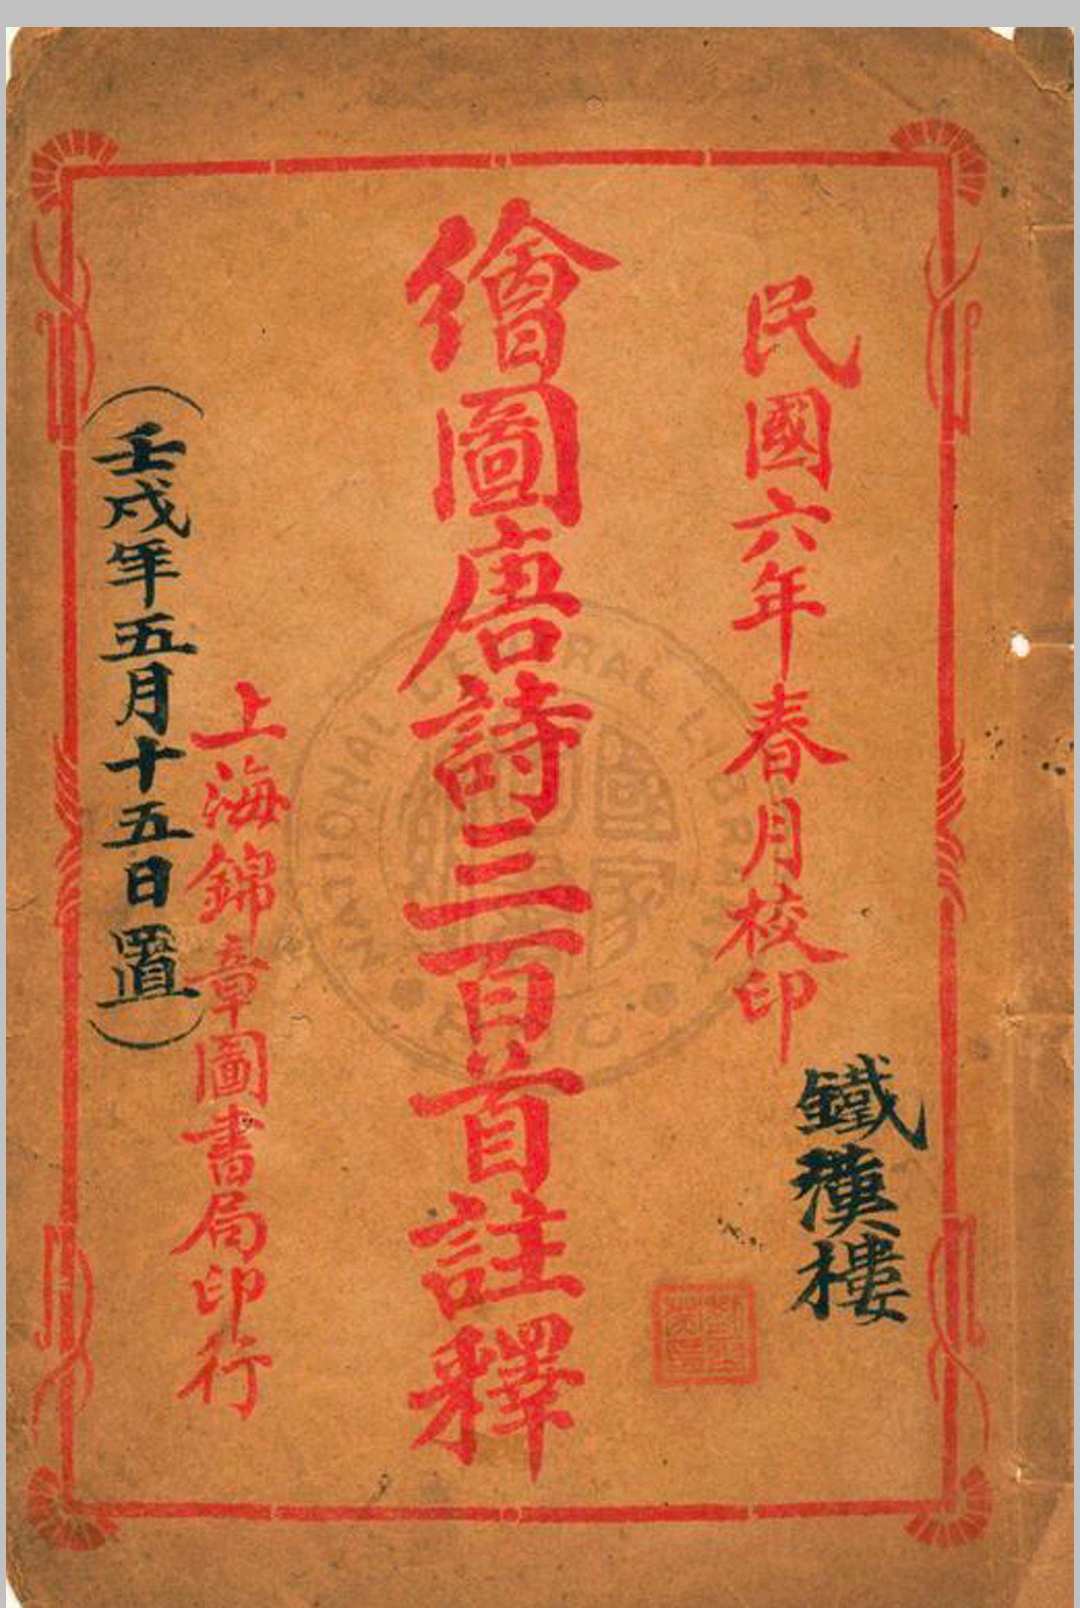 民國六年春月校印
鐵漢樓
繪圖唐詩三百首註釋
上海錦章圖書局印行
(壬戌年五月十五日置)
NATIONAL CENTRAL LIBRARY
國家